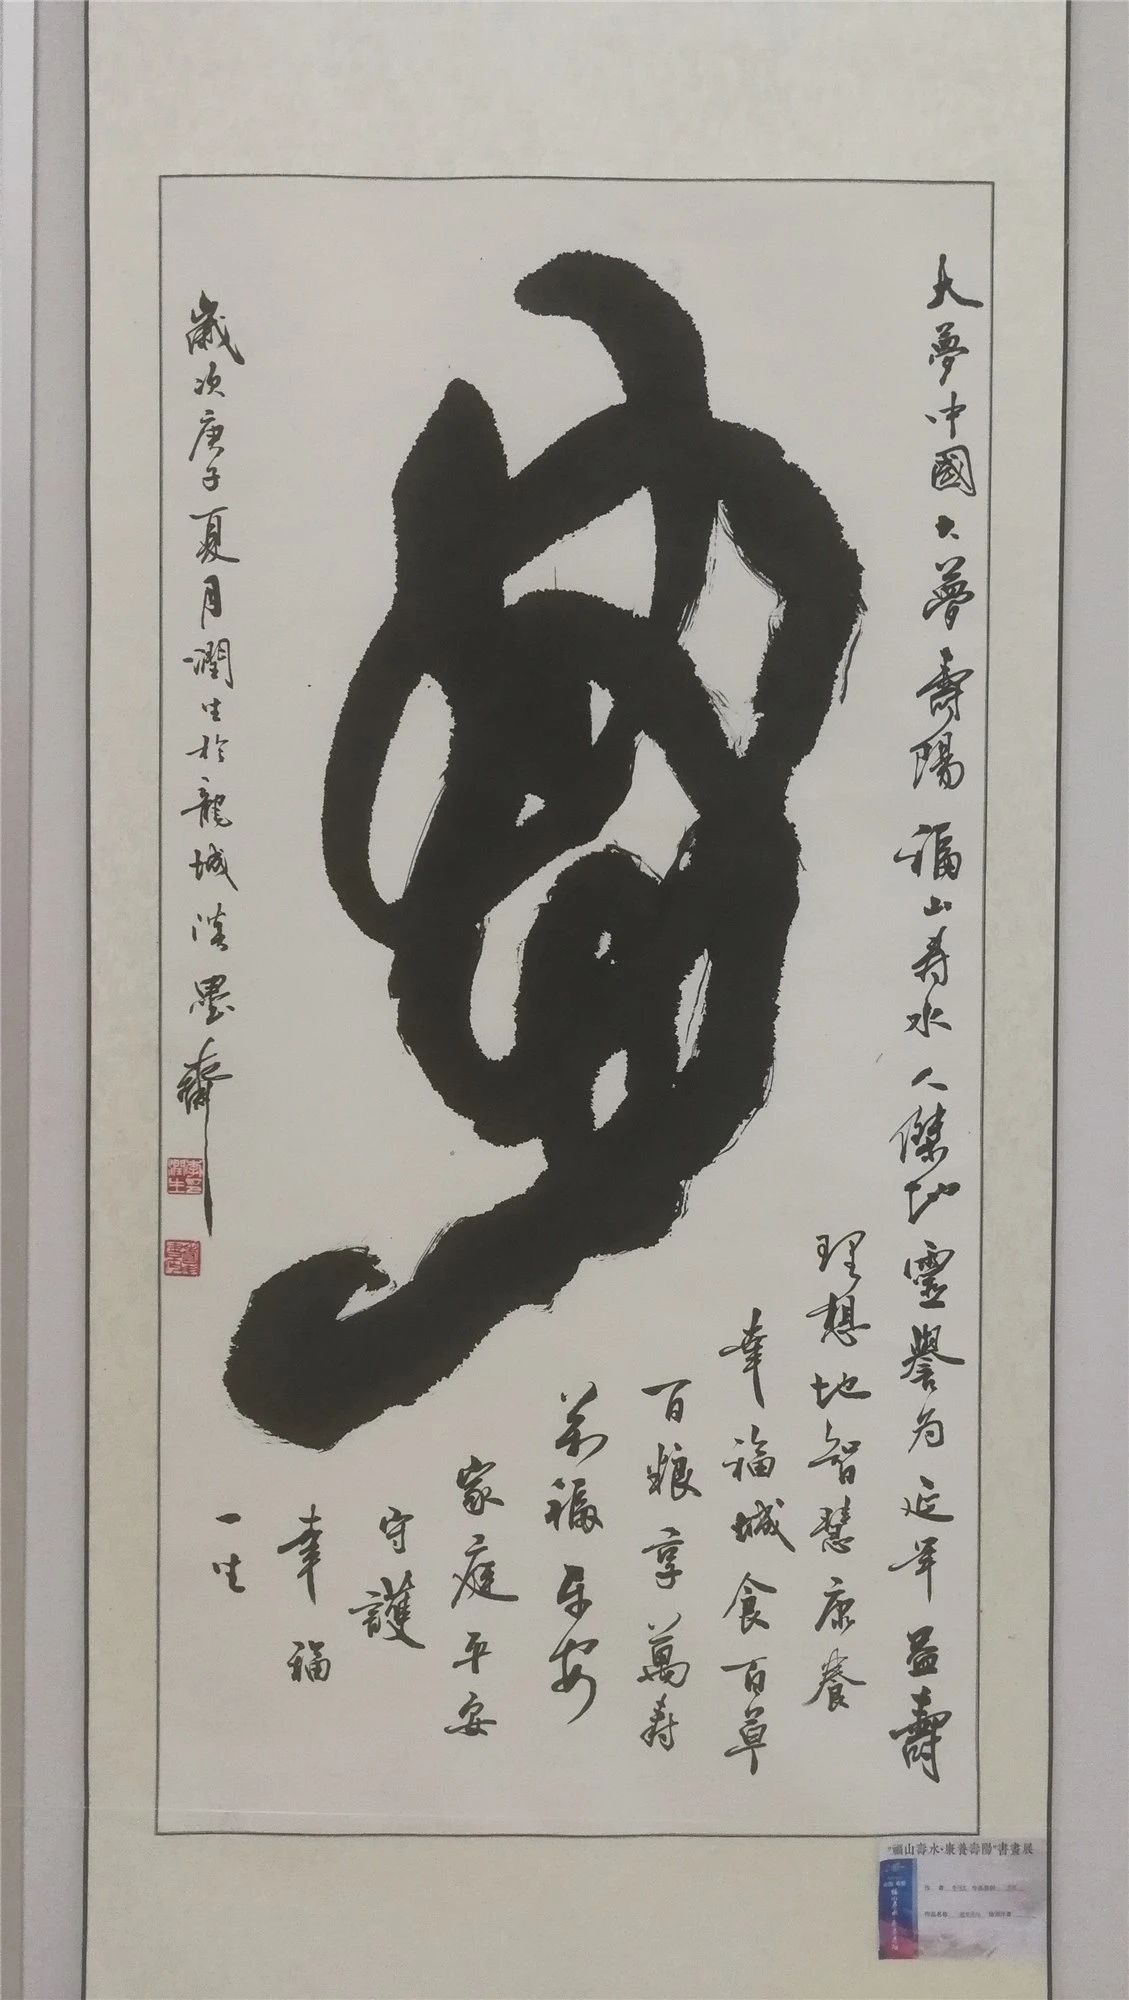 大夢中國大夢壽陽福山寿水人傑地靈譽为延年益壽
理想地智慧康養
幸福城食百草
百粮享萬寿
万福平安
家庭平安
守護
幸福
一生
歲次庚子夏月潤生於龍城淡墨齋
"福山壽水·康養壽陽"書畫展